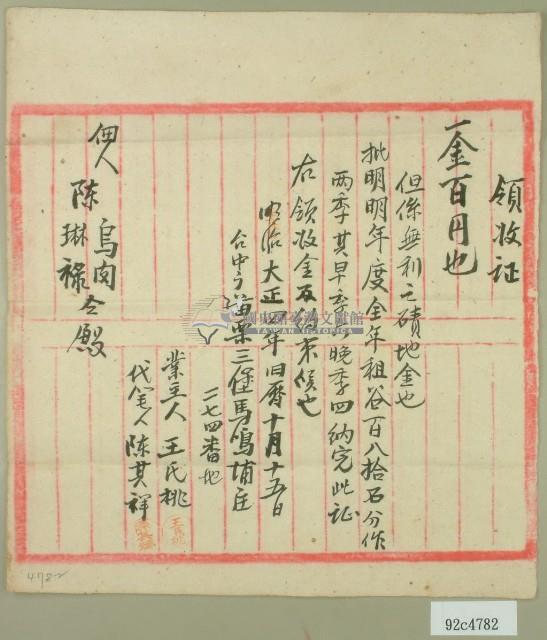 領收証
一金百円也
但係無利之磧地金也
批明明年度全年租谷百八拾石分作
兩季其早季六晚季四納完此証
右領收金及約束候也
明治大正 年旧曆十月十五日
台中 苗栗三堡馬鳴埔庄
二七四番地
業主人 王氏桃
代筆人 陳其祥
佃人 陈 琳祿 仝殿
國史館臺灣文獻館
TAIWAN HISTORICA
478
92c4782